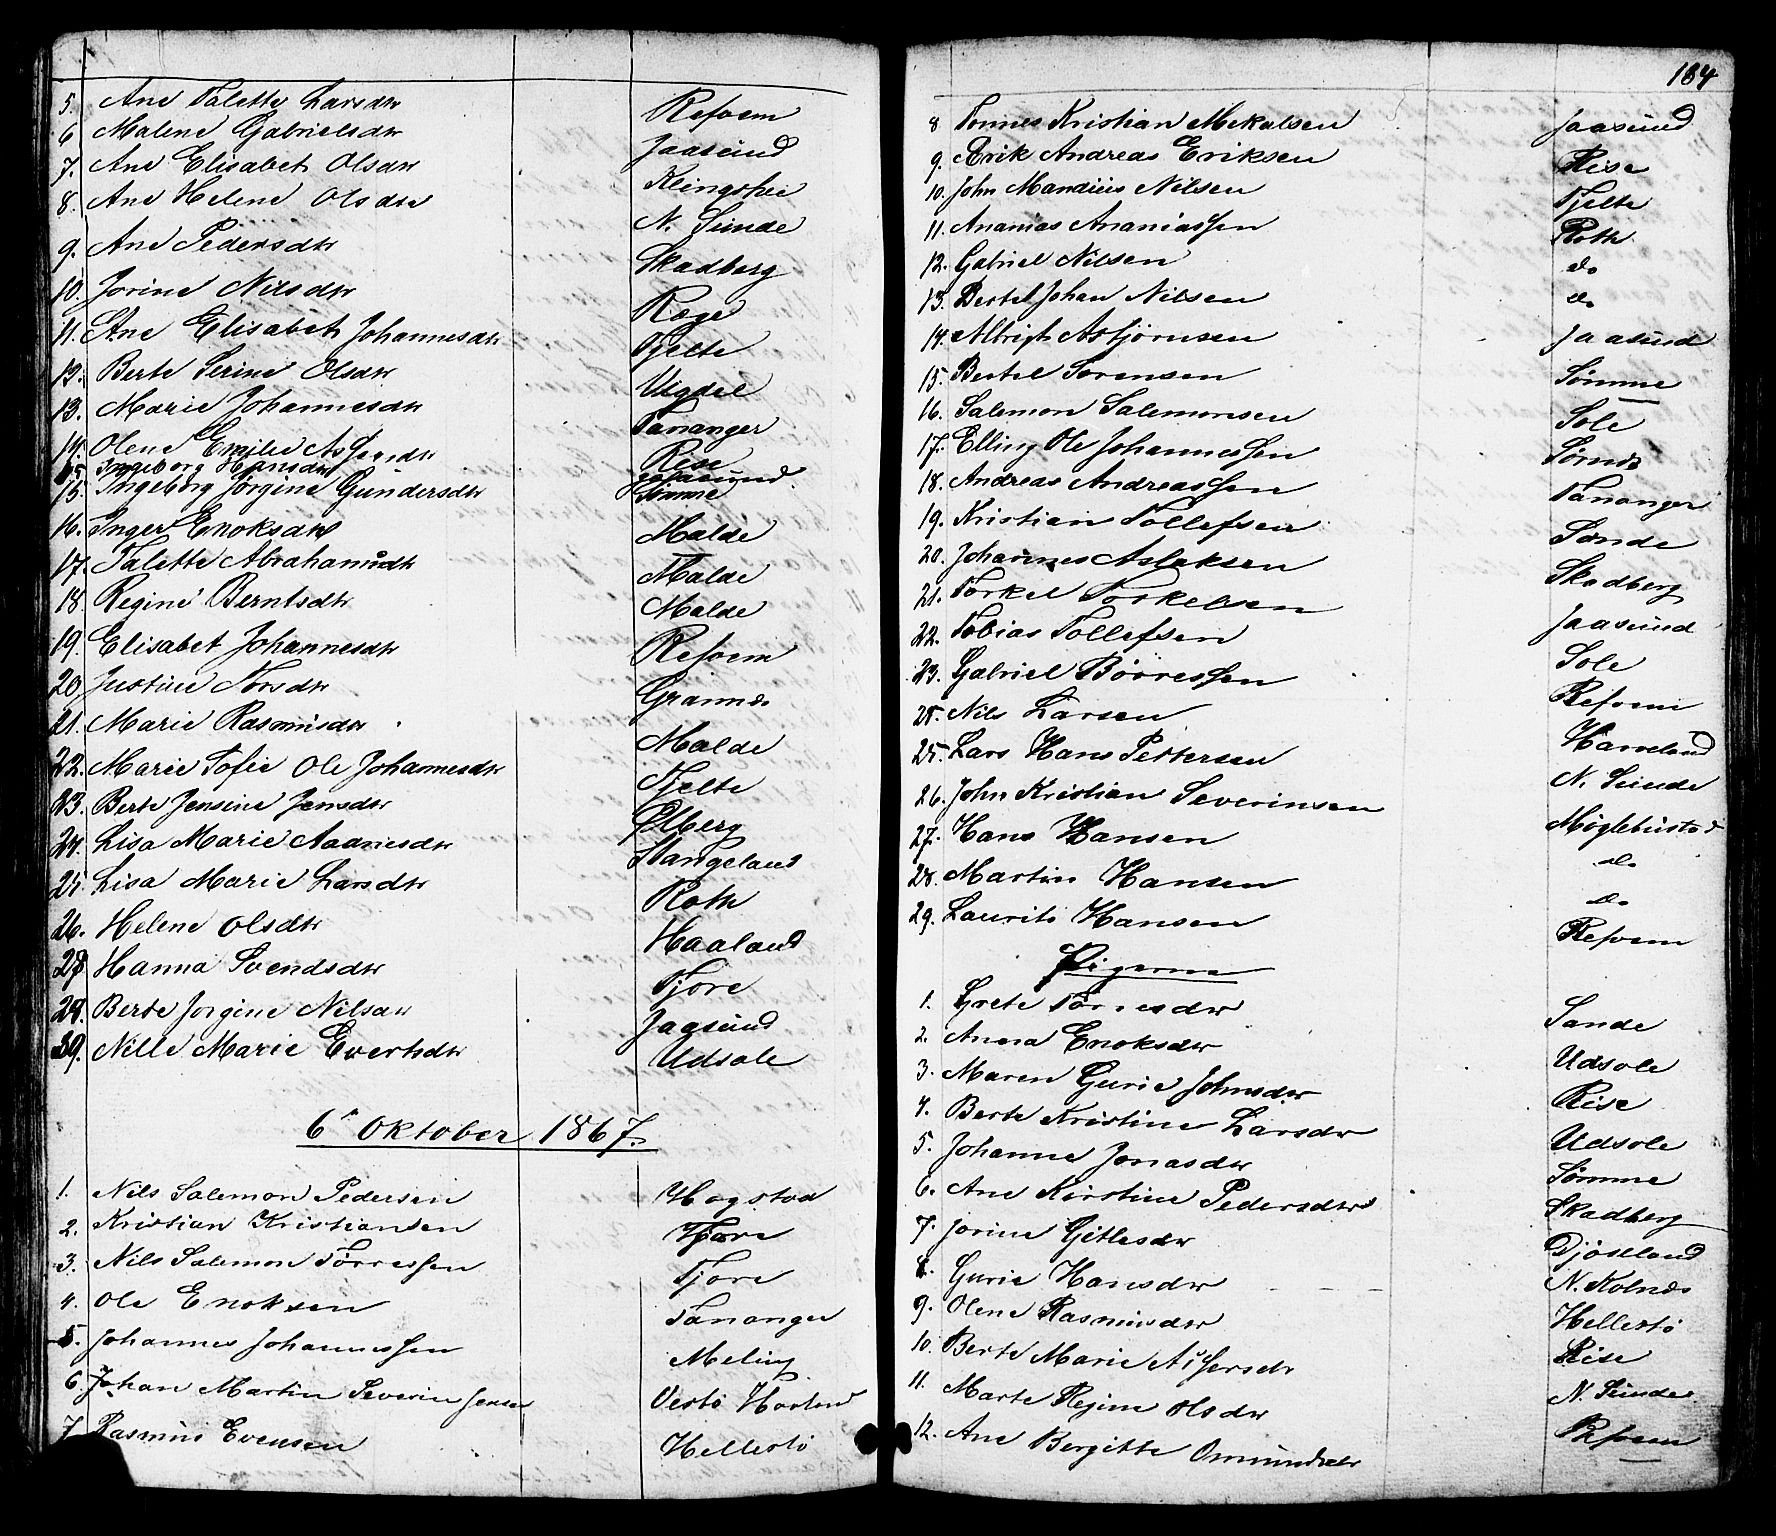 5. Ane Talette Larsdtr Refoem
6 Malene Gabrielsdtr Jaasund
7. Ane Elisabet Olsdtr
8. Ane Helene Olsdtr N. Sunde
9. Ane Pedersdtr Skadberg
10. Jorine Nilsdtr Røge
11. Ane Elisabet Johannesdtr Tjelte
12. Berte Serine Olsdtr Uigdel
13. Marie Johannesdtr Tananger
14. Olene Emilie Rise
15 Ingeborg Hansdtr Jaasund
15. Ingeborg Jørgine Gundersdtr Sømme
16. Inger Enoksdtr Malde
17. Talette Abrahamsdtr Malde
18. Regine Berntsdtr Malde
19. Elisabet Johannesdtr Refoem
20 Justine Torsdtr Grannes
21. Marie Rasmusdtr Malde
22. Marie Tofie Ole Johannesdtr Tjelte
23. Berte Jensine Jensdtr Ølberg
24. Lisa Marie Aadnesdtr Stangeland
25. Lisa Marie Larsdtr Roth
26. Helene Olsdtr Haaland
27 Hanna Svendsdtr Tjore
28. Berte Jorgine Nilsdtr Jaasund
29. Nille Marie Evertsdtr Udsole
6te Oktober 1867.
1. Nils Salemon Pedersen Hogstad
2. Kristian Kristiansen Tjore
3. Nils Salemon Torressen Tjore
4. Ole Enoksen Tananger
5. Johannes Johannessen Meling
6. Johan Martin Severin Jensen Vestø
7 Rasmus Evensen Hellestö
184
8 Tønnes Kristian Mikalsen Jaasund
9. Erik Andreas Eriksen Rise
10. John Mandius Nilsen Tjelte
11. Ananias Ananiassen Roth
12. Gabriel Nilsen do
13. Bertel Johan Nilsen do
14. Albrigt Asbjørnsen Jaasund
15. Bertel Sørensen Sømme
16. Salemon Salemonsen Sole
17. Elling Ole Johannessen Sørnes
18. Andreas Andreassen Tananger
19. Kristian Tollefsen Sande
20. Johannes Aslaksen Skadberg
21. Torkel Torkelsen Jaasund
22. Tobias Tollefsen Sole
23. Gabriel Börressen Refoem
24. Nils Larsen Harveland
25. Lars Hans Pettersen N. Sunde
26. John Kristian Severinsen Møglebustad
27. Hans Hansen do
28. Martin Hansen do
29. Laurits Hansen Refoem
Pigerne
1. Grete Torresdtr Sande
2. Anna Enoksdtr Udsole
3. Maren Gurie Johnsdtr Rise
4. Berte Kristine Larsdtr Udsole
5. Johanne Jonasdtr Sømme
6. Ane Kirstine Pedersdtr Skadberg
7. Jorine Gitlesdtr Djösland
8. Gurie Hansdtr N. Kolnes
9. Olene Rasmusdtr Hellestö
10. Berte Marie Rise
11. Marte Regine Olsdtr N. Sunde
12. Ane Bergitte Omundsdtr Refoem